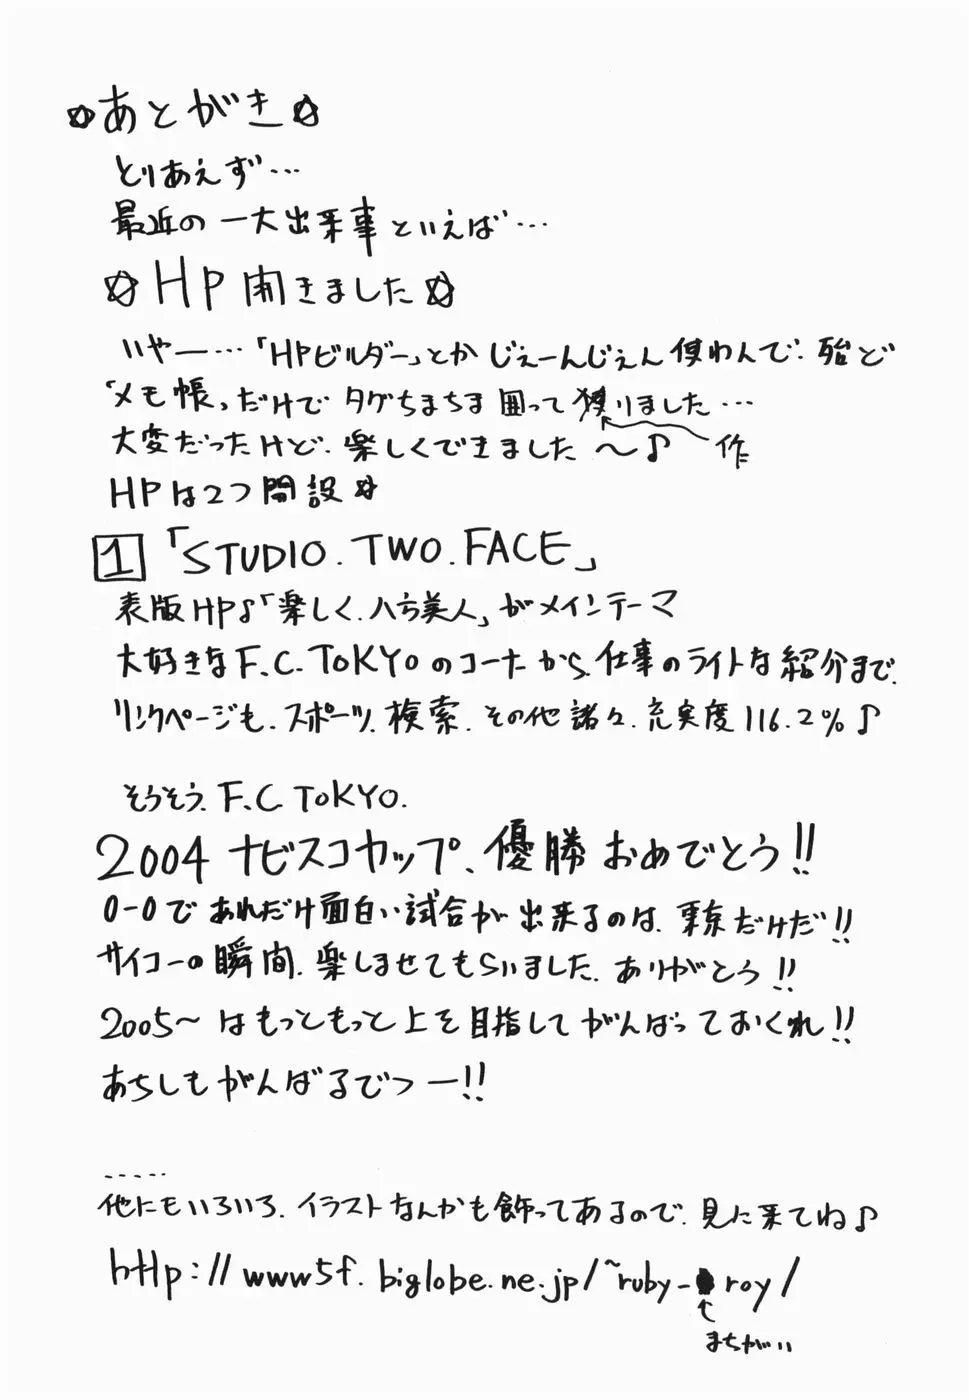 ☆あとがき☆
とりあえず…
最近の一大出来事といえば…
☆HP開きました☆
いやー…「HPビルダー」とかじぇーんじぇん使わんで、殆ど
「メモ帳」だけでタグちまちま囲って りました…
大変だったけど、楽しくできました〜♪ 作
HPは2つ開設☆
1「STUDIO.TWO.FACE」
表版HP♪「楽しく、八方美人」がメインテーマ
大好きなF.C.TOKYOのコーナから、仕事のライトな紹介まで。
リンクページも、スポーツ、検索、その他諸々、充実度116.2%♪
そうそう、F.C TOKYO.
2004ナビスコカップ、優勝おめでとう!!
0-0であれだけ面白い試合が出来るのは、東京だけだ!!
サイコーの瞬間、楽しませてもらいました、ありがとう!!
2005〜はもっともっと上を目指してがんばっておくれ!!
あちしもがんばるでつー!!
.....
他にもいろいろ、イラストなんかも飾ってあるので、見に来てね♪
http://www5f.biglobe.ne.jp/~ruby-roy/
まちがい